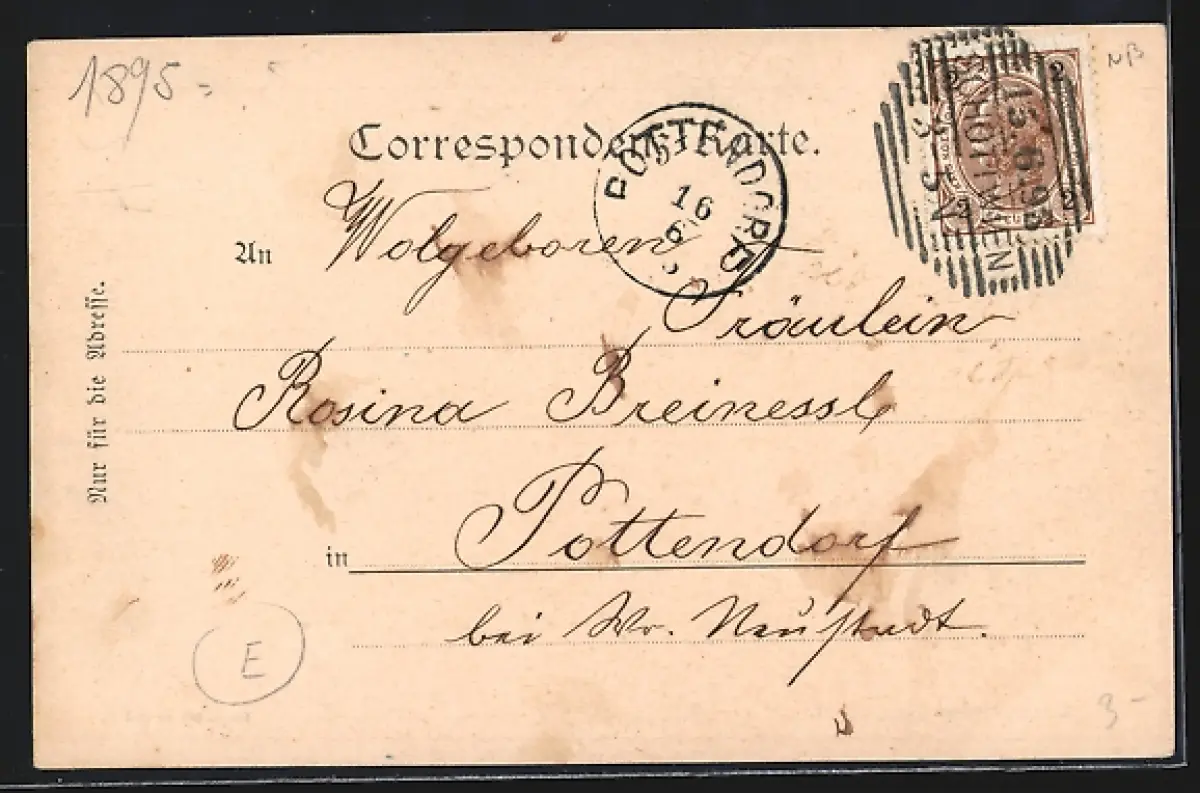 1895
NB
Correspondenz-Karte.
POTTENDORF
16
6
SCHOTTWIEN
15.6.95
2 2
2 2
An Wolgeboren
Fräulein
Rosina Breinessl
in Pottendorf
bei Wr. Neustadt.
Nur für die Adresse.
E
3-